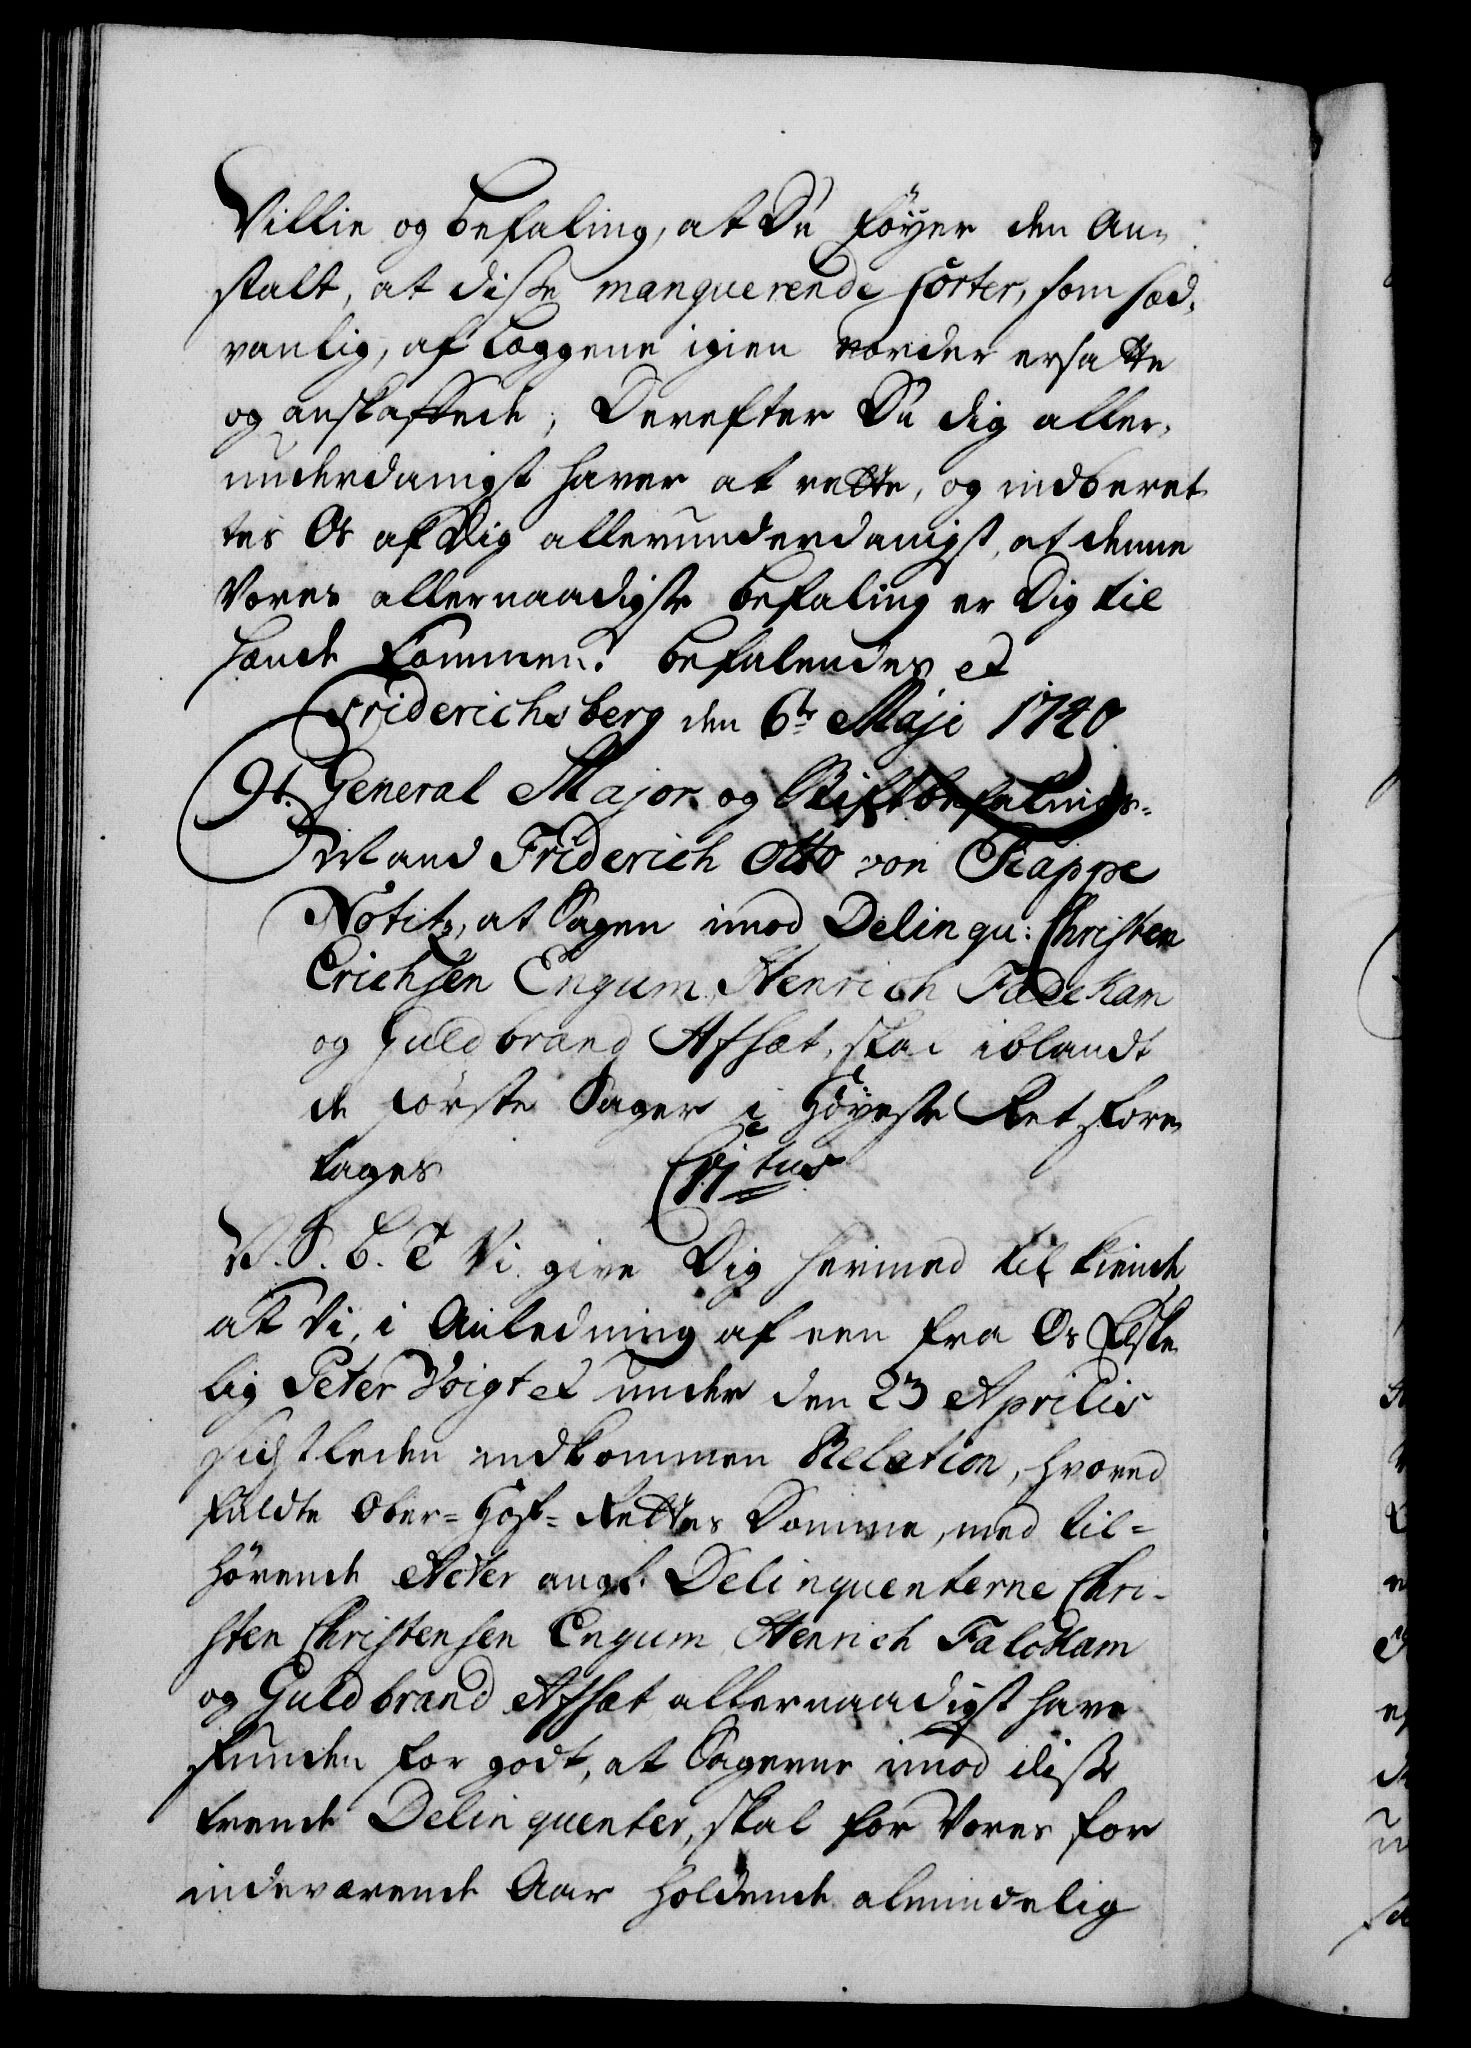 Villie og befaling, at Du föÿer den An-
stalt, at disse manquerende sorter, som sæd-
vanlig, af Læggene igien vorder ersatte
og anskaffede; Derefter Du dig aller-
underdanigst haver at rette, og indberet-
tes Os af Dig allerunderdanigst, at denne
Vores allernaadigste befaling er Dig til
hænde kommen. befalendes et
Friderichsberg den 6te Maji 1740
9t. General Major og Stiftbefalings-
Mand Friderich Otto von Rappe
Notitz, at Sagen imod Delinqu: Christen
Erichsen Engum, Henrich Fadekam
og Guldbrand Afsæt, skal iblandt
de förste Sager i Höÿeste Ret fore-
tages
V. S. G. T. Vi give Dig hermed til kiende,
at Vi, i Anledning af een fra Os Elske-
lig Peter Voigt et under den 23 Aprilis
sidstleden indkommen Relation, hvored
fuldte Ober-Hof-Rettes Domme, med til-
hörende Acter angl. Delinquenterne Chri-
sten Christensen Engum, Henrich Faldkam
og Guldbrand Afsæt allernaadigst have
funden for godt, at Sagerne imod disse
trende Delinquenter, skal for Vores for
indeværende Aar holdende almindelig